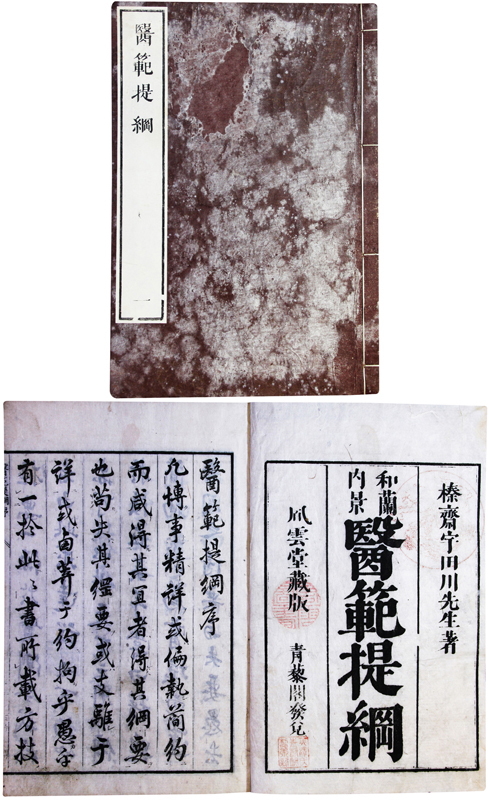 醫範提綱
一
榛齋宇田川先生著
和蘭
内景
醫範提綱
風雲堂藏版
青藜閣發兌
醫範提綱序
凢博事精詳或偏執简約
而咸得其冝者得其綱要
也苟失其經要或支離于
詳或鹵莽于約拘乎愚乎
有一於此〻書所載方技